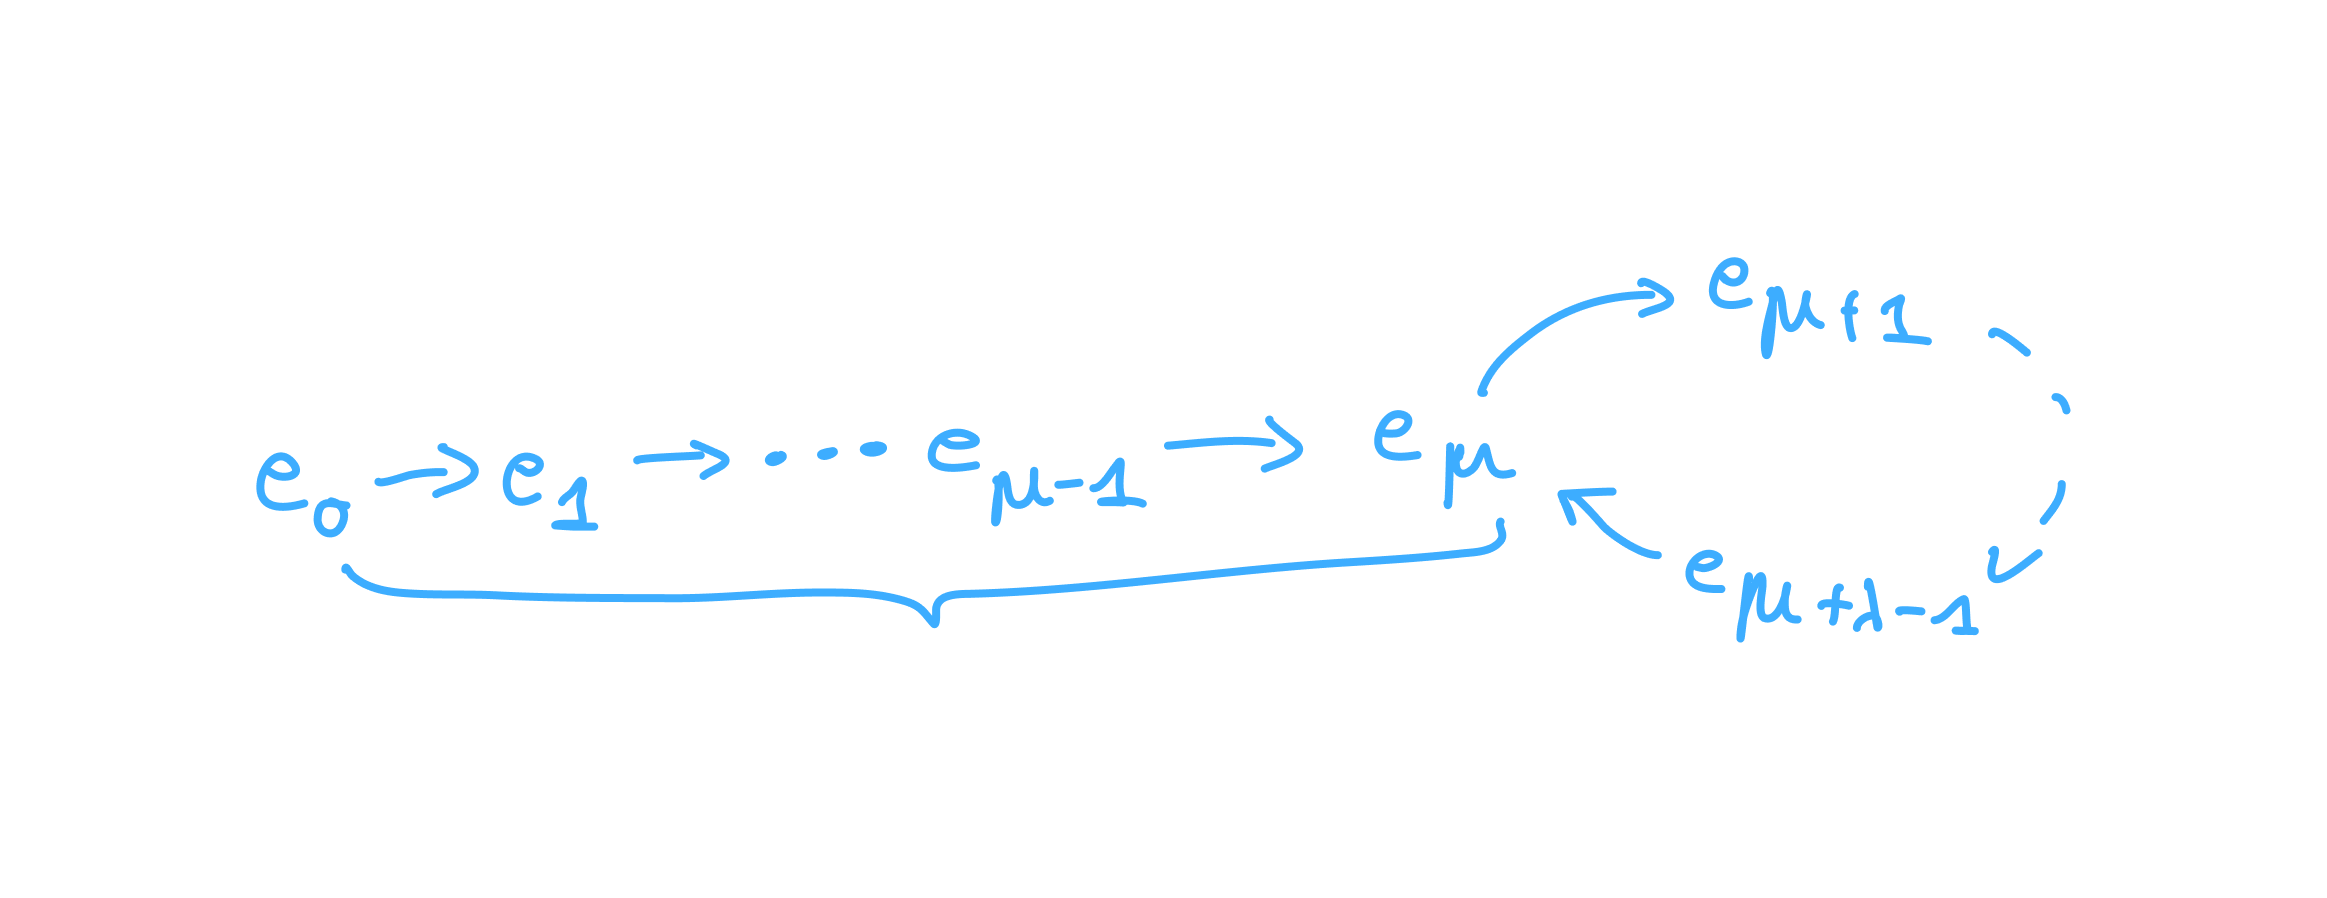 e₀ → e₁ → ... e_{μ-1} → e_μ
e_{μ+1}
e_{μ+λ-1}